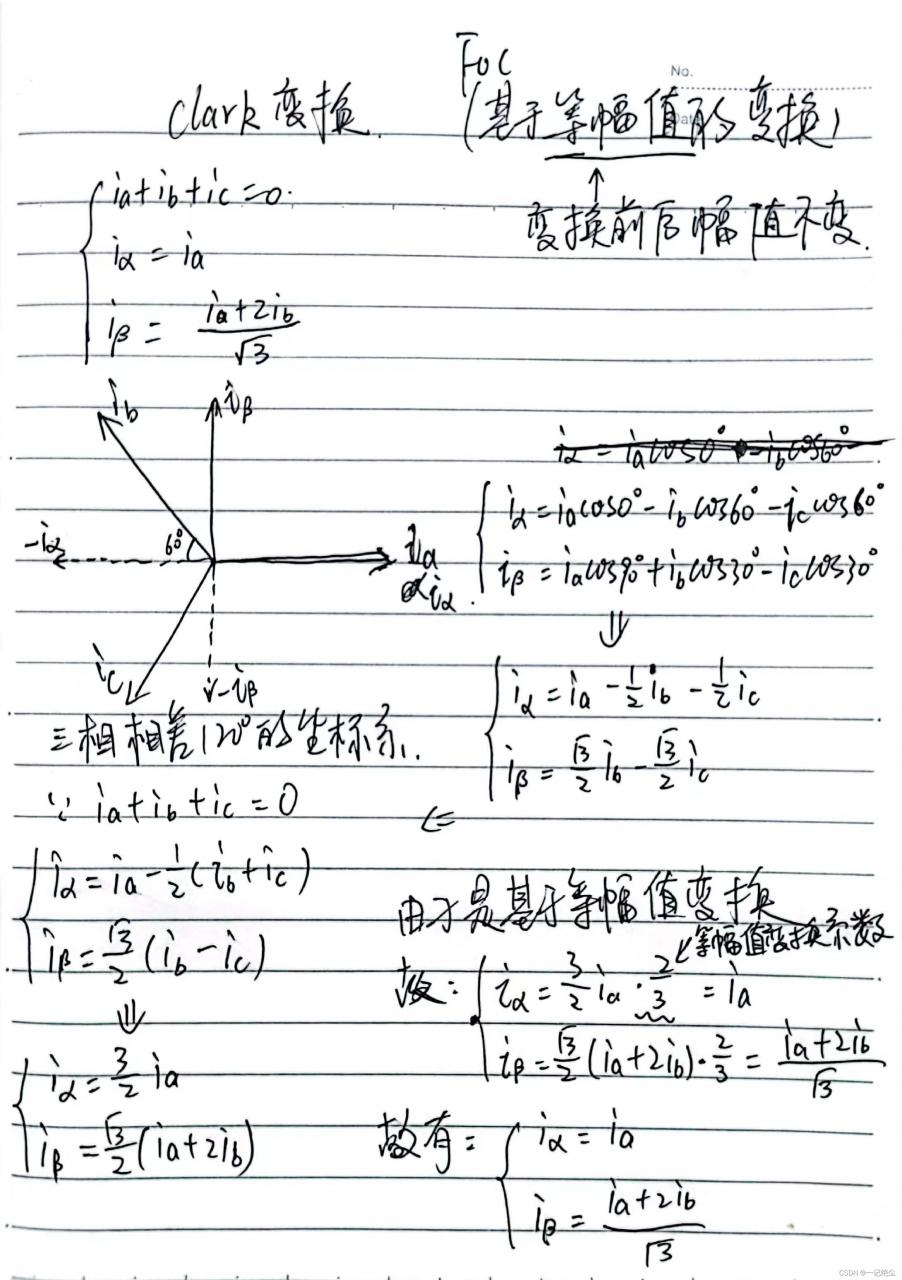 FOC
No.
Clark 变换. (基于等幅值的变换)
Date
↑
变换前后幅值不变.
ia+ib+ic=0.
iα = ia
iβ = (ia+2ib)/√3
ib
iβ
-iα
60°
ia
iα.
ic
-iβ
三相相差120°的坐标系.
iα = iacos0° - ibcos60°
iα = iacos0° - ibcos60° - iccos60°
iβ = iacos90° + ibcos30° - iccos30°
⇓
iα = ia - 1/2 ib - 1/2 ic
iβ = √3/2 ib - √3/2 ic
⇐
∵ ia+ib+ic = 0
iα = ia - 1/2 (ib+ic)
iβ = √3/2 (ib - ic)
⇓
iα = 3/2 ia
iβ = √3/2 (ia+2ib)
由于是基于等幅值变换
等幅值变换系数
故: iα = 3/2 ia · 2/3 = ia
iβ = √3/2 (ia+2ib) · 2/3 = (ia+2ib)/√3
故有: iα = ia
iβ = (ia+2ib)/√3
CSDN @一记绝尘